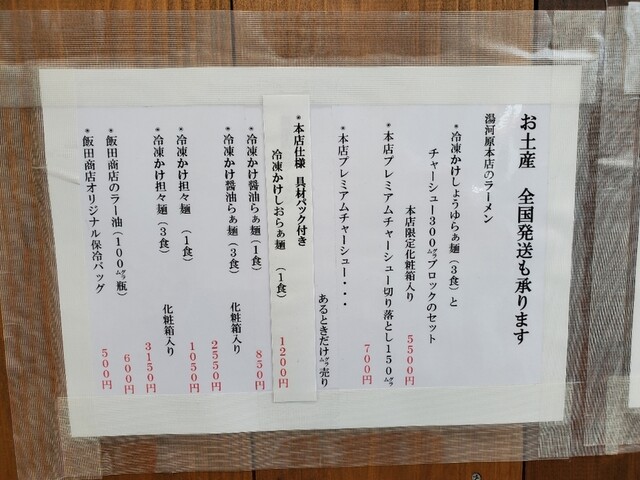 お土産　全国発送も承ります
湯河原本店のラーメン
*冷凍かけしょうゆらぁ麺（3食）と
チャーシュー300㌘ブロックのセット
本店限定化粧箱入り
5500円
*本店プレミアムチャーシュー切り落とし150㌘
700円
*本店プレミアムチャーシュー・・・
あるときだけ㌘売り
*本店仕様　具材パック付き
冷凍かけしおらぁ麺　（1食）
1200円
*冷凍かけ醬油らぁ麺（1食）
850円
*冷凍かけ醬油らぁ麺（3食）　化粧箱入り
2550円
*冷凍かけ担々麺　（1食）
1050円
*冷凍かけ担々麺　（3食）　化粧箱入り
3150円
*飯田商店のラー油（100㌘瓶）
600円
*飯田商店オリジナル保冷バッグ
500円